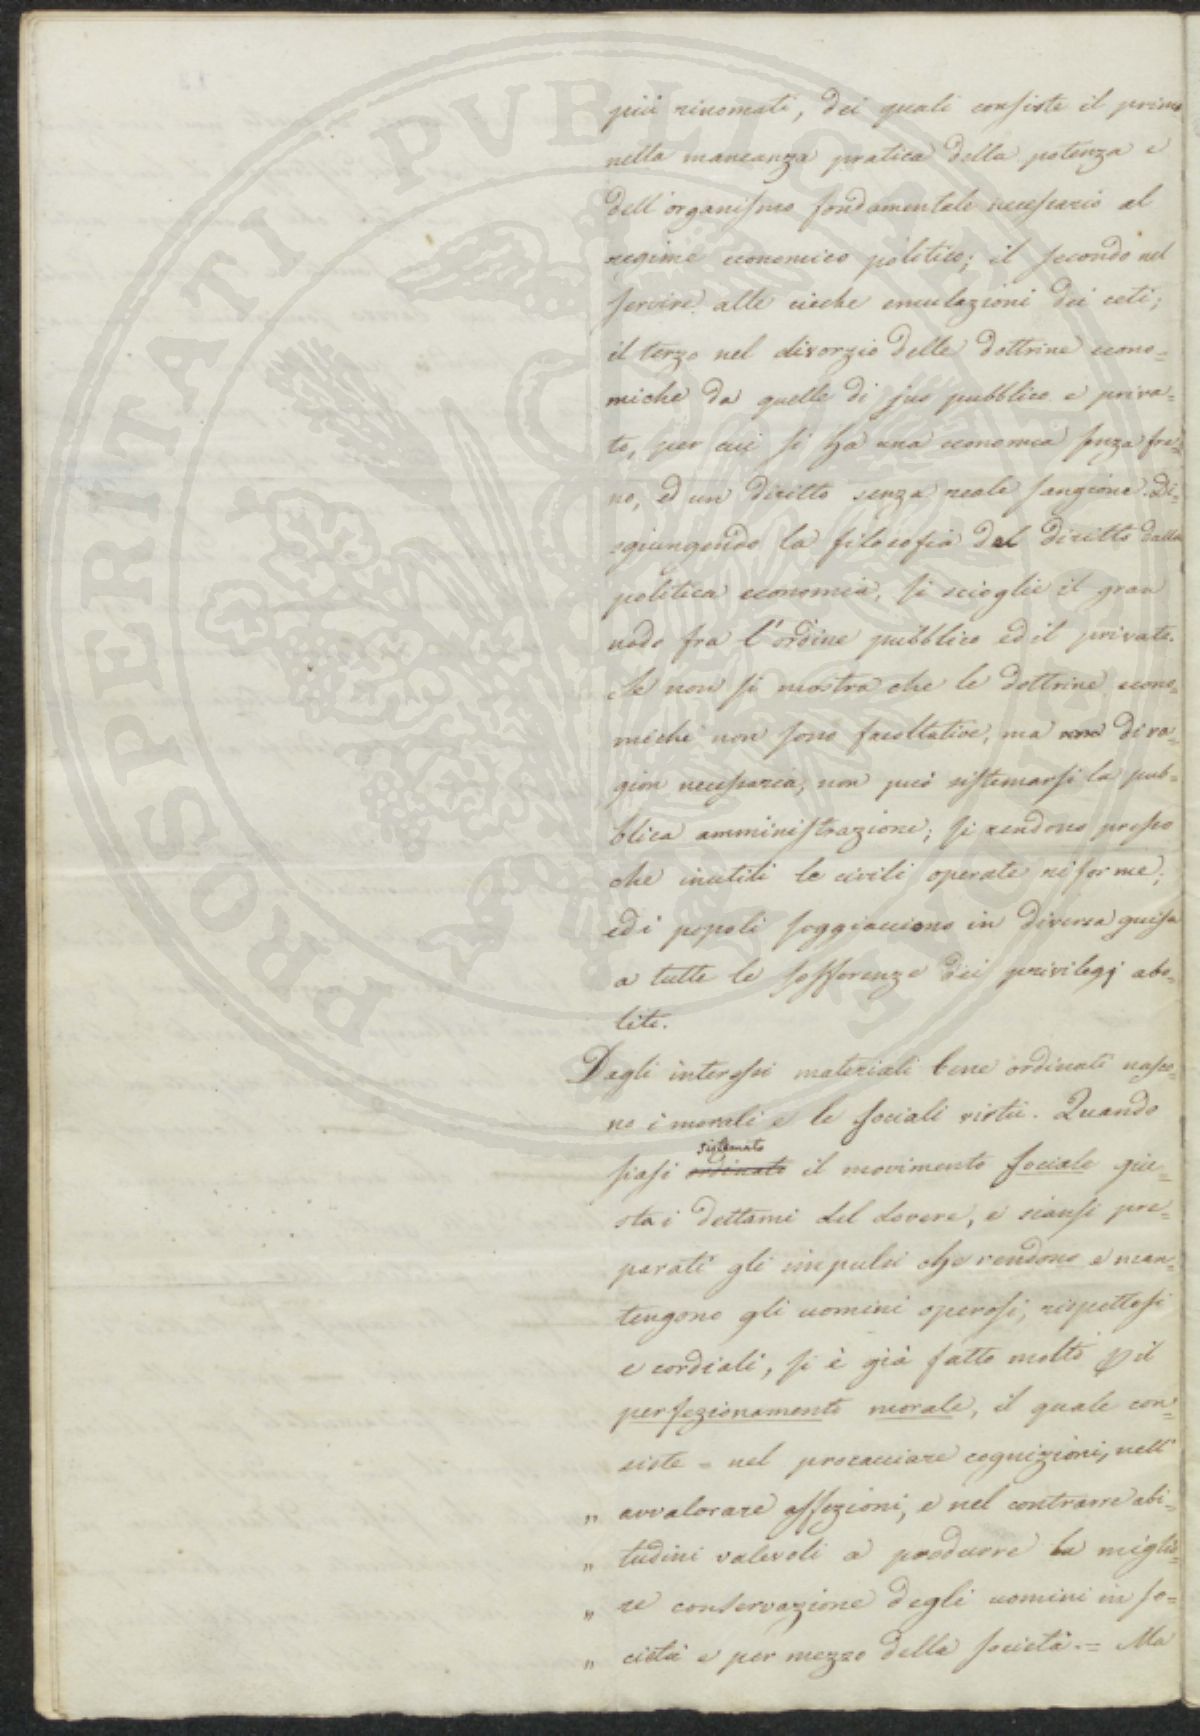 più rinomati, dei quali consiste il primo
nella mancanza pratica della potenza e
dell'organismo fondamentale necessario al
regime economico politico; il secondo nel
servire alle cieche emulazioni dei ceti;
il terzo nel divorzio delle dottrine econo=
miche da quelle di jus pubblico e priva=
to, per cui si ha una economia senza fre=
no, ed un diritto senza reale sanzione. Di=
sgiungendo la filosofia del diritto dalla
politica economia, si scioglie il gran
nodo fra l'ordine pubblico ed il privato.
Se non si mostra che le dottrine econo=
miche non sono facoltative, ma di ra=
gion necessaria, non può sistemarsi la pub=
blica amministrazione; si rendono presso
che inutili le civili operate riforme;
ed i popoli soggiacciono in diversa guisa
a tutte le sofferenze dei privilegj abo=
liti.
Dagli interessi materiali bene ordinati nasco=
no i morali e le sociali virtù. Quando
sistemato
siasi ordinato il movimento sociale giu=
sta i dettami del dovere, e siansi pre=
parati gli impulsi che rendono e man=
tengono gli uomini operosi, rispettosi
e cordiali, si è già fatto molto p il
perfezionamento morale, il quale con=
siste = nel procacciare cognizioni, nell'
" avvalorare affezioni, e nel contrarre abi=
" tudini valevoli a produrre la miglio=
" re conservazione degli uomini in so=
" cietà e per mezzo della società.= Ma
PROSPERITATI PVBLICAE